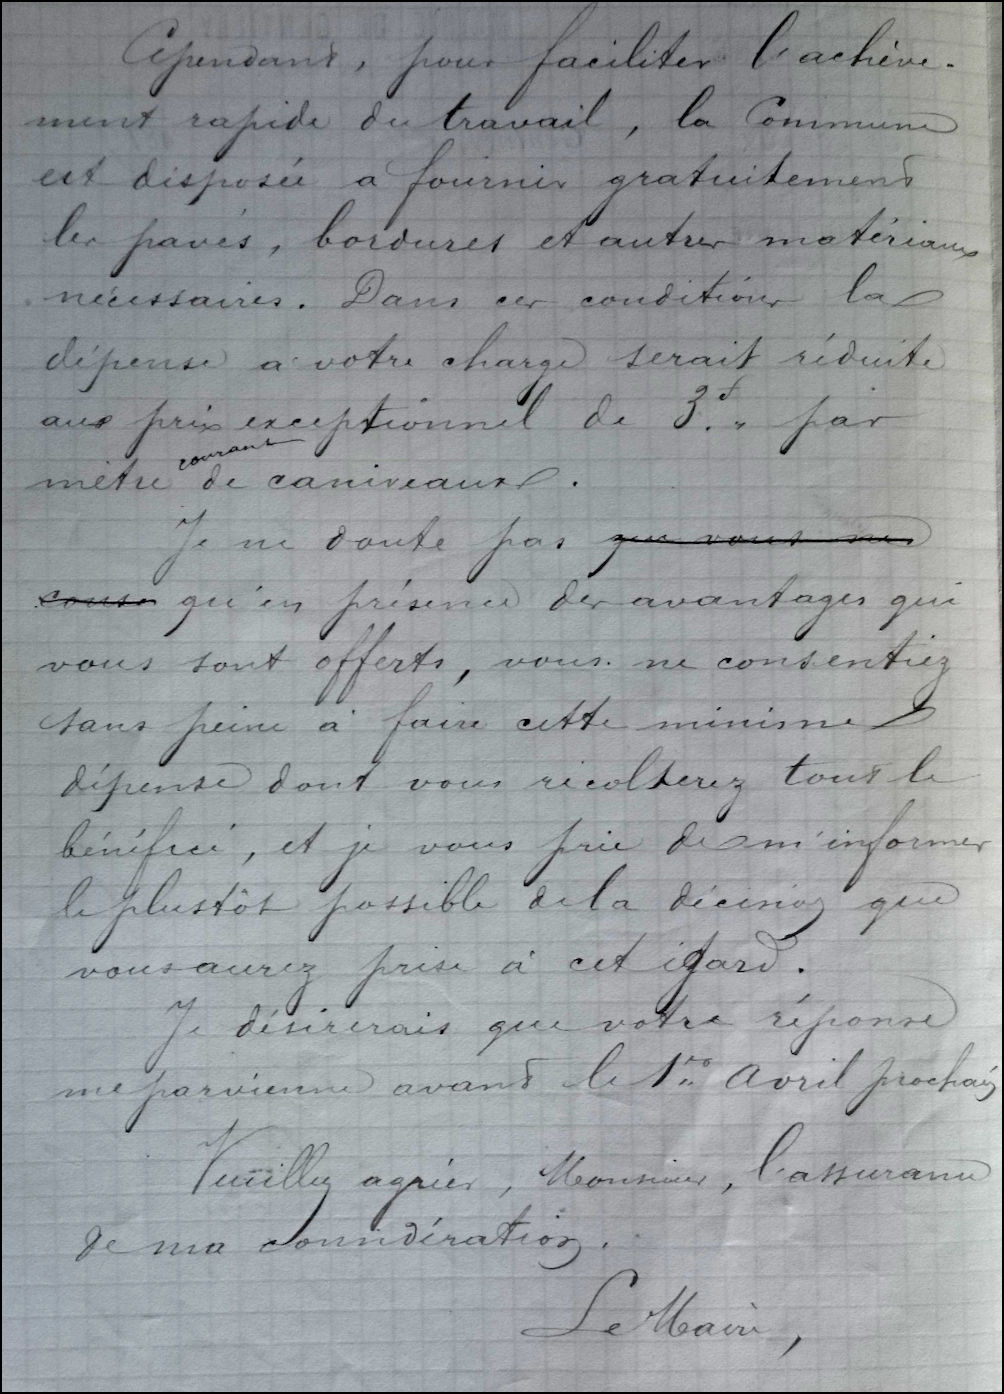 Cependant, pour faciliter l'achève-
ment rapide du travail, la Commune
est disposée a fournir gratuitement
les pavés, bordures et autres matériaux
nécessaires. Dans ces conditions la
dépense a votre charge serait réduite
aux prix exceptionnel de 3f. " par
mètre courant de caniveaux.
Je ne doute pas que vous ne
qu'en présence des avantages qui
vous sont offerts, vous ne consentiez
sans peine à faire cette minime
dépense dont vous récolterez tout le
bénéfice, et je vous prie de m'informer
le plustôt possible de la décision que
vous aurez prise à cet égard.
Je désirerais que votre réponse
me parvienne avant le 1er Avril prochain
Veuillez agréer, Monsieur, l'assurance
de ma considération.
Le Maire,